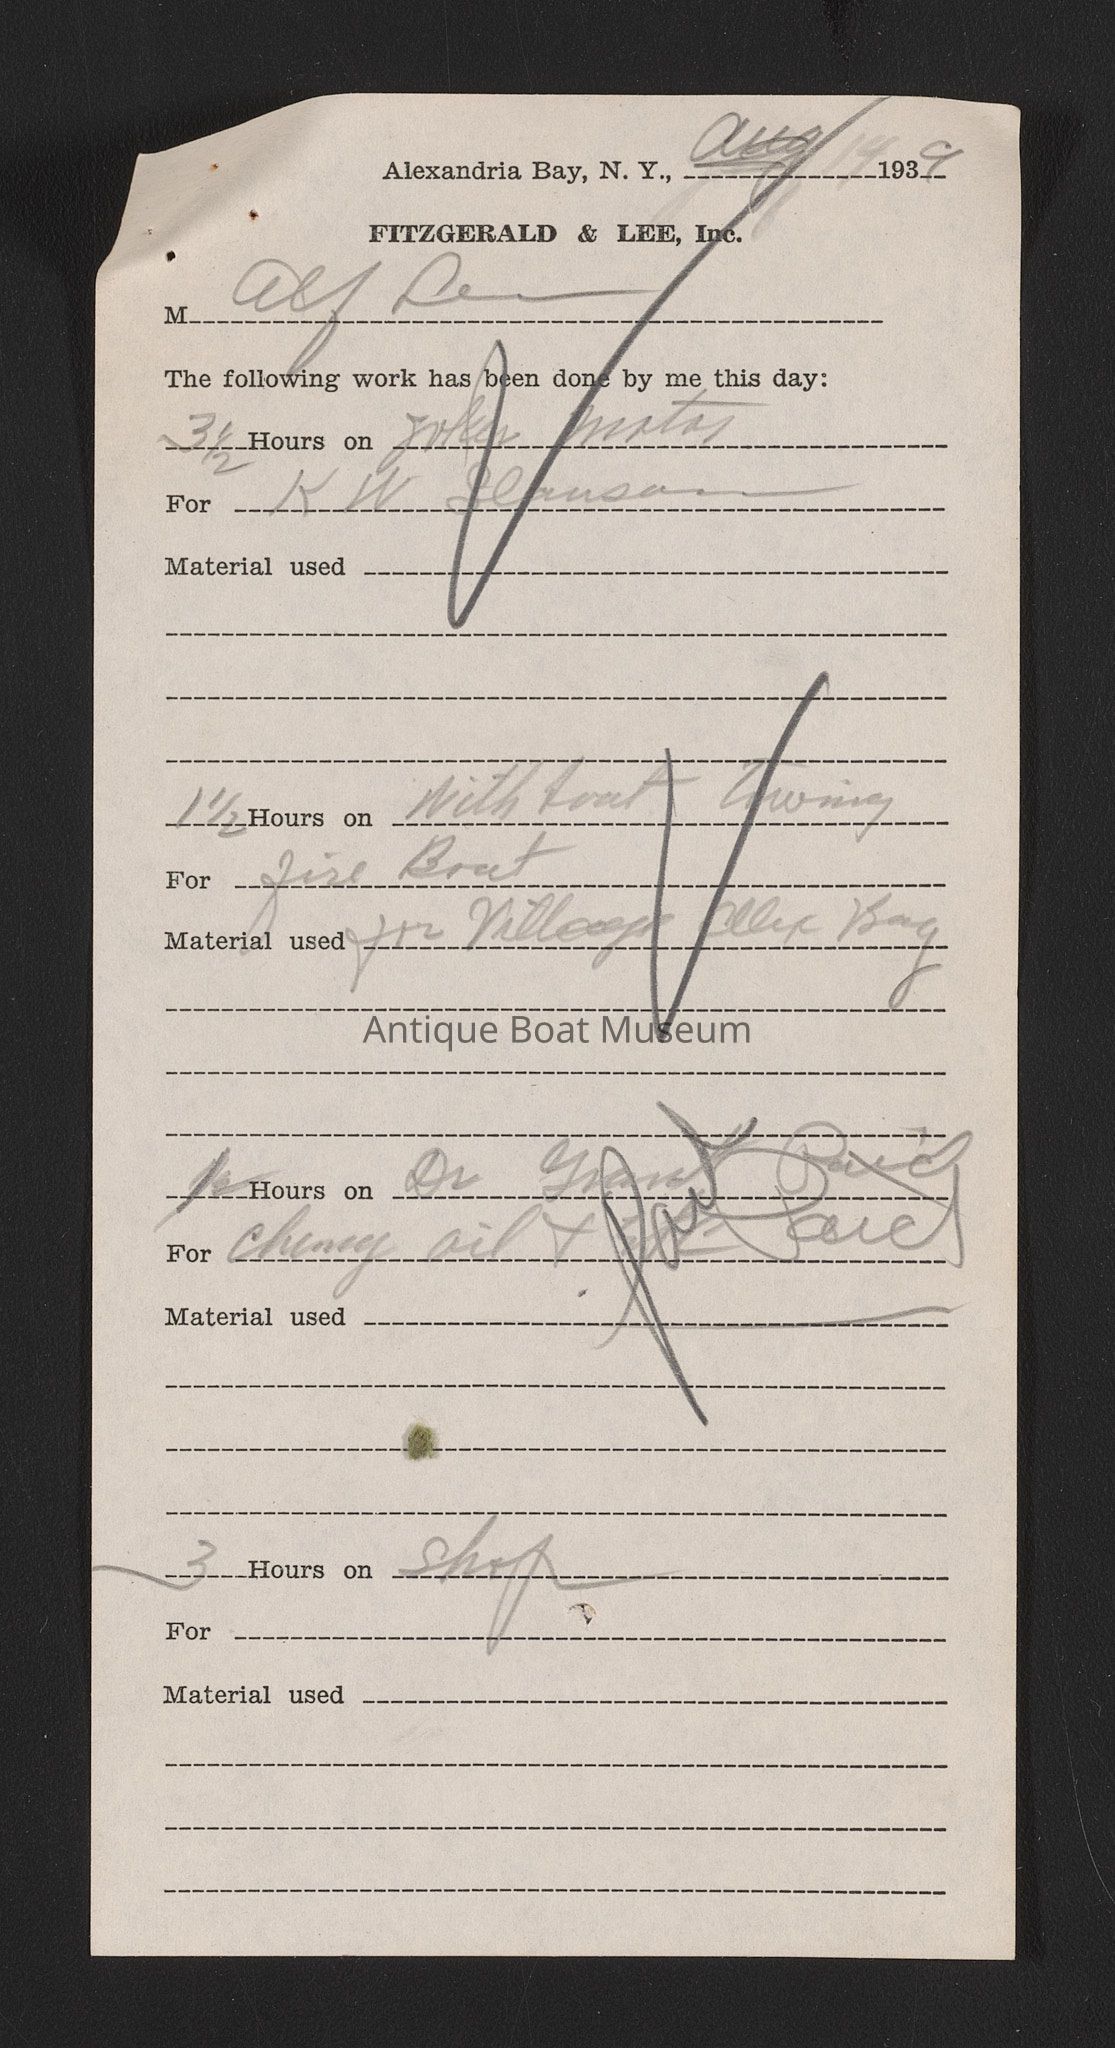 Alexandria Bay, N. Y., Aug 14 1939
FITZGERALD & LEE, Inc.
M Alf Lee
The following work has been done by me this day:
3 1/2 Hours on Joker Motor
For K W
Material used
1 1/2 Hours on With boat towing
For Fire Boat
Material used for Village Alex Bay
Antique Boat Museum
Hours on Dr Grant Paid
For oil + Paid
Material used
3 Hours on Shop
For
Material used